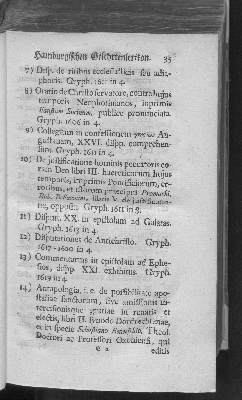 Hamburgischen Gelehrtenlexikon. 35
7) Disp. de ritibus ecclesiasticis seu adia-
phoris. Gryph. 1611 in 4.
8) Oratio de Christo servatore, contra hujus
temporis Neophotinianos, inprimis
Faustum Socinum, publice pronunciata.
Gryph. 1606 in 4.
9) Collegium in confessionem Au-
gustanam, XXVI. dispp. comprehen-
sum. Gryph. 1611 in 4.
10) De justificatione hominis peccatoris co-
ram Deo libri III. haereticorum hujus
temporis, inprimis Pontificiorum, er-
roribus, et
libris V. de justificatio-
ne, oppositi. Gryph. 1611 in 8.
11) Disputt. XX. in epistolam ad Galatas.
Gryph. 1613 in 4.
12) Disputationes de Antichristo. Gryph.
1617-1620 in 4.
13) Commentarius in epistolam ad Ephe-
sios, dispp. XXI. exhibitus. Gryph.
1619 in 4.
14) Antapologia, i. e. de possibilitate apo-
stasiae sanctorum, sive amissionis in-
tercisionisque gratiae in renatis et
electis, libri II. synodo Dordrechtanae,
et in specie Theol.
Doctori ac Professori qui
C 2 editis